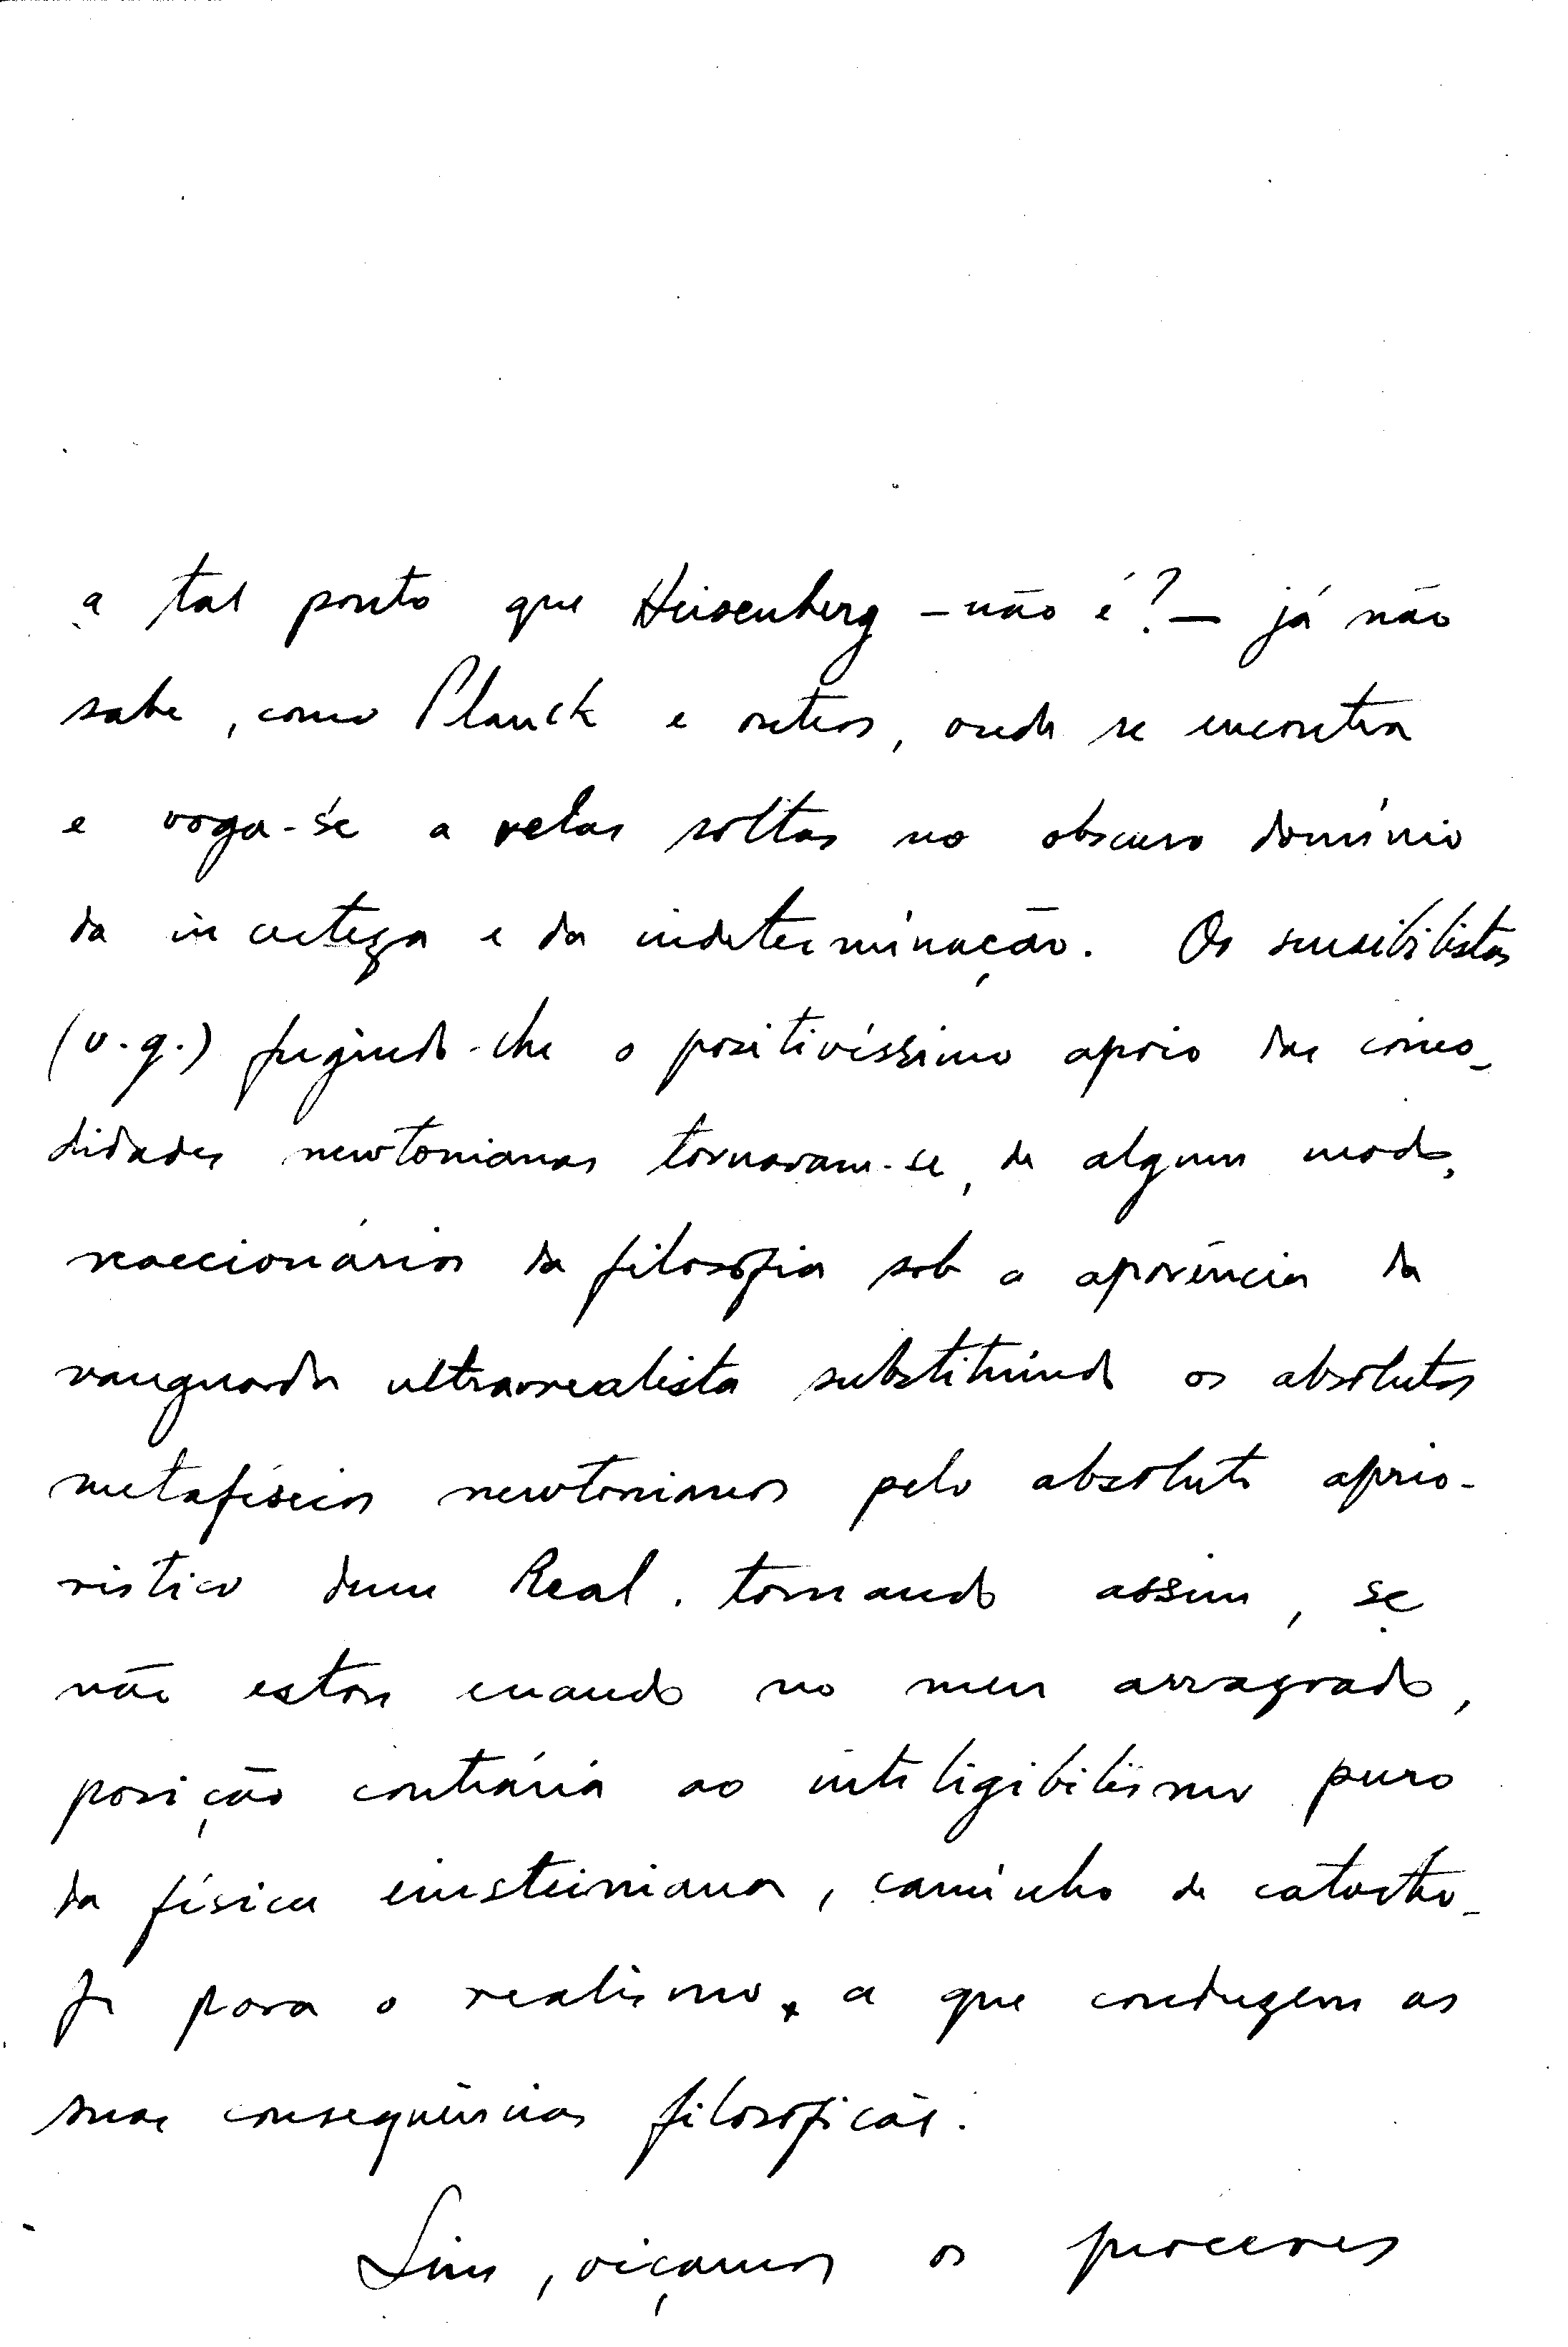 a tal ponto que Heisenberg – não é? – já não
sabe, como Planck e outros, onde se encontra
e voga-se a velas soltas no obscuro domínio
da incerteza e da indeterminação. Os sensibilistas
(v.g.) fugindo-lhe o positivíssimo apoio das como-
didades newtonianas tornaram-se, de algum modo,
reaccionários da filosofia sob a aparência da
vanguarda ultrarrealista substituindo os absolutos
metafísicos newtonianos pelo absoluto aprio-
ristico dum Real. tomando assim, se
não estou errando no meu arrazoado,
posição contrária ao inteligibilismo puro
da física einsteiniana, caminho de catástro-
fe para o realismo, a que conduzem as
suas consequências filosóficas.
Sim, oiçamos os próceres